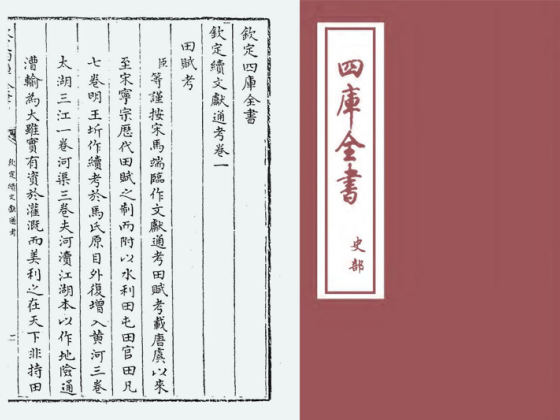 欽定四庫全書
欽定續文獻通考卷一
田賦考
臣等謹按宋馬端臨作文獻通考田賦考載唐虞以來
至宋寧宗歷代田賦之制而附以水利田屯田官田凡
七卷明王圻作續考於馬氏原目外復增入黃河三卷
太湖三江一卷河渠三卷夫河瀆江湖本以作地險通
漕輸為大雖實有資於灌溉而美利之在天下非特田
欽定續文獻通考
四庫全書
史部